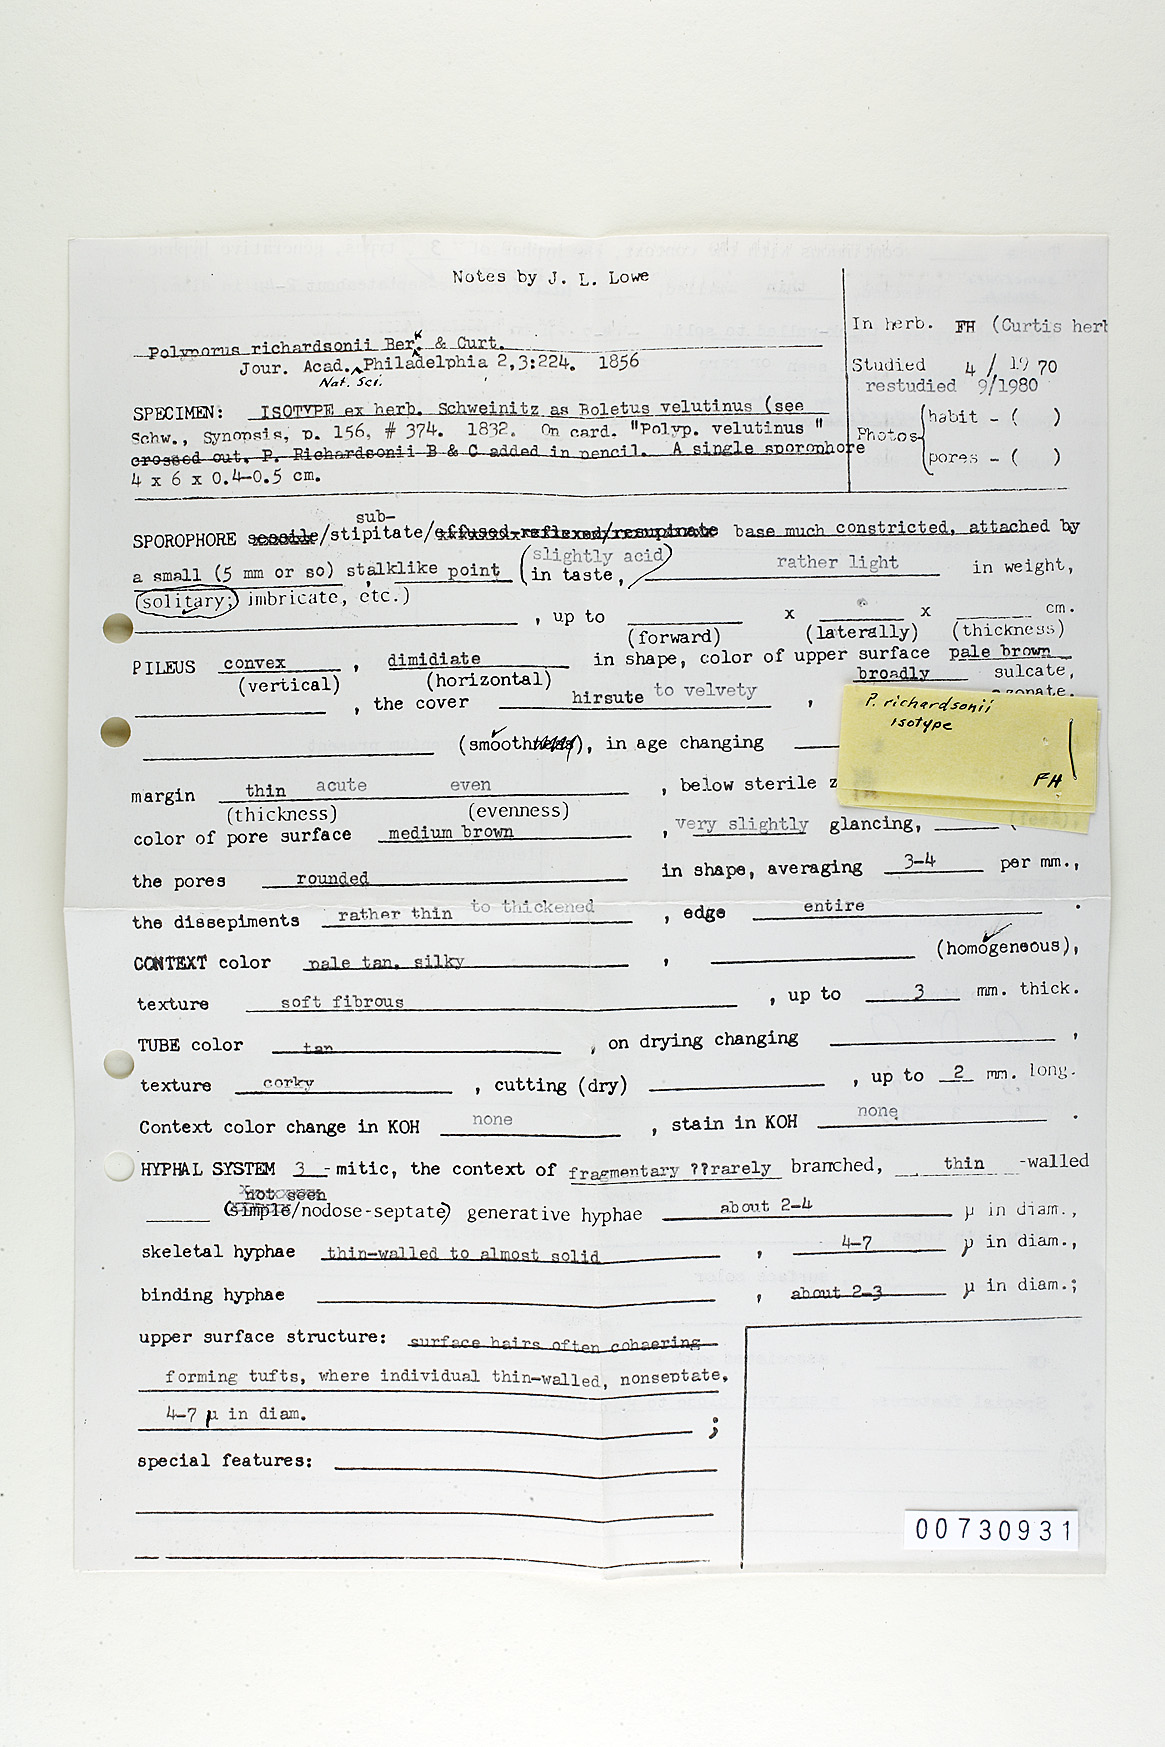 Notes by J. L. Lowe
In herb. FH (Curtis herb
Polyporus richardsonii Berk. & Curt.
Jour. Acad. Nat. Sci. Philadelphia 2,3:224. 1856
Studied 4 / 1970
restudied 9/1980
Photos habit - ( )
pores - ( )
SPECIMEN: ISOTYPE ex herb. Schweinitz as Boletus velutinus (see
Schw., Synopsis, p. 156, # 374. 1832. On card. "Polyp. velutinus "
crossed out. P. Richardsonii B & C added in pencil. A single sporophore
4 x 6 x 0.4-0.5 cm.
sub-
SPOROPHORE sessile/stipitate/effused-reflexed/resupinate base much constricted, attached by
a small (5 mm or so) stalklike point (slightly acid in taste,) rather light in weight,
(solitary; imbricate, etc.)
, up to x x cm.
(forward) (laterally) (thickness)
PILEUS convex , dimidiate in shape, color of upper surface pale brown
(vertical) (horizontal) broadly sulcate,
, the cover hirsute to velvety , zonate.
(smoothness), in age changing
P. richardsonii
isotype
FH
margin thin acute even , below sterile z
(thickness) (evenness)
color of pore surface medium brown , very slightly glancing,
the pores rounded in shape, averaging 3-4 per mm.,
the dissepiments rather thin to thickened , edge entire .
CONTEXT color pale tan, silky , (homogeneous),
texture soft fibrous , up to 3 mm. thick.
TUBE color tan , on drying changing ,
texture corky , cutting (dry) , up to 2 mm. long.
Context color change in KOH none , stain in KOH none .
HYPHAL SYSTEM 3 -mitic, the context of fragmentary ??rarely branched, thin -walled
not seen
(simple/nodose-septate) generative hyphae about 2-4 µ in diam.,
skeletal hyphae thin-walled to almost solid , 4-7 µ in diam.,
binding hyphae , about 2-3 µ in diam.;
upper surface structure: surface hairs often cohaering
forming tufts, where individual thin-walled, nonseptate,
4-7 µ in diam. ;
special features:
00730931